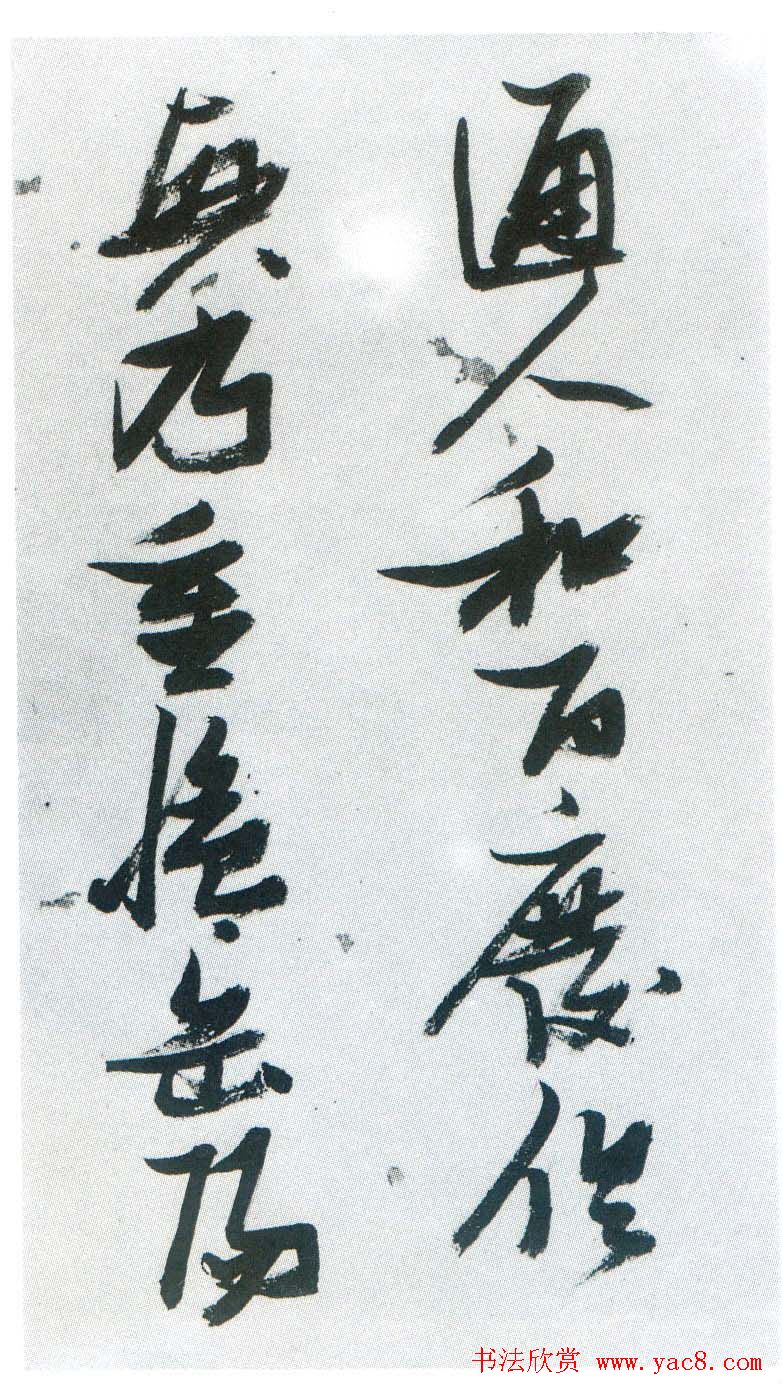 通人和百废俱
興乃重修岳陽
书法欣赏 www.yac8.com